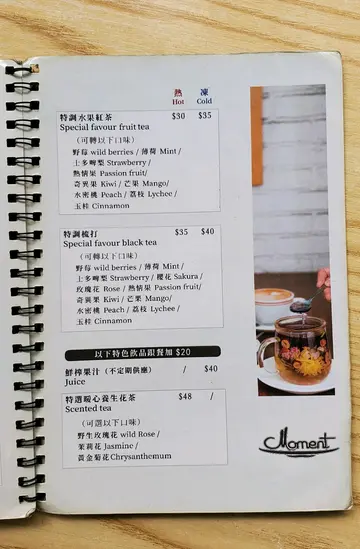 熱 凍
Hot Cold
特調水果紅茶 $30 $35
Special favour fruit tea
（可轉以下口味）
野莓 wild berries / 薄荷 Mint /
士多啤梨 Strawberry /
熱情果 Passion fruit/
奇異果 Kiwi / 芒果 Mango/
水蜜桃 Peach / 荔枝 Lychee /
玉桂 Cinnamon
特調梳打 $35 $40
Special favour black tea
（可轉以下口味）
野莓 wild berries / 薄荷 Mint /
士多啤梨 Strawberry / 櫻花 Sakura /
玫瑰花 Rose / 熱情果 Passion fruit/
奇異果 Kiwi / 芒果 Mango/
水蜜桃 Peach / 荔枝 Lychee /
玉桂 Cinnamon
以下特色飲品跟餐加 $20
鮮榨果汁（不定期供應） / $40
Juice
特選暖心養生花茶 $48 /
Scented tea
（可選以下口味）
野生玫瑰花 wild Rose /
茉莉花 Jasmine /
黃金菊花 Chrysanthemum
Moment